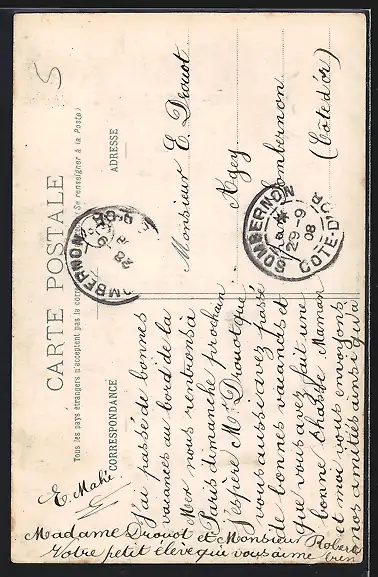 5
CARTE POSTALE
Tous les pays étrangers n'acceptent pas la corr Se renseigner à la Poste)
CORRESPONDANCE
ADRESSE
Monsieur E. Drouot
Agey
Sombernon
(Côte d'or)
SOMBERNON
29-9
08
COTE-D'OR
OMBERNON
28
J'ai passé de bonnes
vacances au bord de la
Mer nous rentrons à
Paris dimanche prochain
j'espère Mr Drouot que
vous aussi avez passé
de bonnes vacances et
que vous avez fait une
bonne chasse Maman
et moi vous envoyons
nos amitiés ainsi qu'a
Madame Drouot et Monsieur Robert
Votre petit élève qui vous aime bien
E Mahé